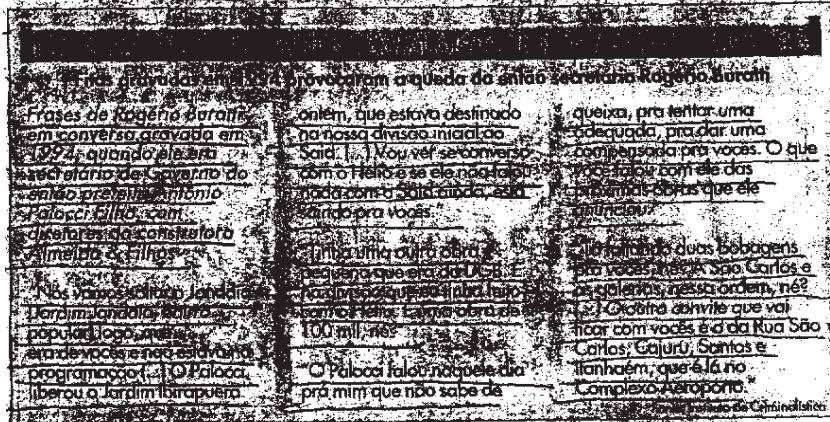 gravadas em 1994 provocaram a queda do então secretário Rogério Buratti
Frases de Rogério Buratti,
em conversa gravada em
1994, quando ele era
secretário de Governo do
então prefeito Antônio
Palocci Filho, com
diretores da construtora
Almeida & Filhos
"Nós vamos soltar o Jandaia,
Jardim Jandaia, bairro
popular, logo, que
era de vocês e não estava na
programação [...] O Palocci
liberou o Jardim Ibirapuera
ontem, que estava destinado
na nossa divisão inicial ao
Said. [...] Vou ver se converso
com o Hélio e se ele não falou
nada com o Said ainda, está
saindo pra vocês."
"Tinha uma outra obra
pequena que era da DGB. E
na divisão que eu tinha feito
com o Hélio. É uma obra de
100 mil, né?
"O Palocci falou naquele dia
prá mim que não sabe de
queixa, pra tentar uma
adequada, pra dar uma
compensada pra vocês. O que
você falou com ele das
próximas obras que ele
anunciou."
faltando duas bobagens
pra vocês São Carlos e
as galerias, nessa ordem, né?
[...] O outro convite que vai
ficar com vocês é o da Rua São
Carlos, Cajuru, Santos e
Itanhaém, que é lá no
Complexo Aeroporto."
Fonte: Instituto de Criminalística